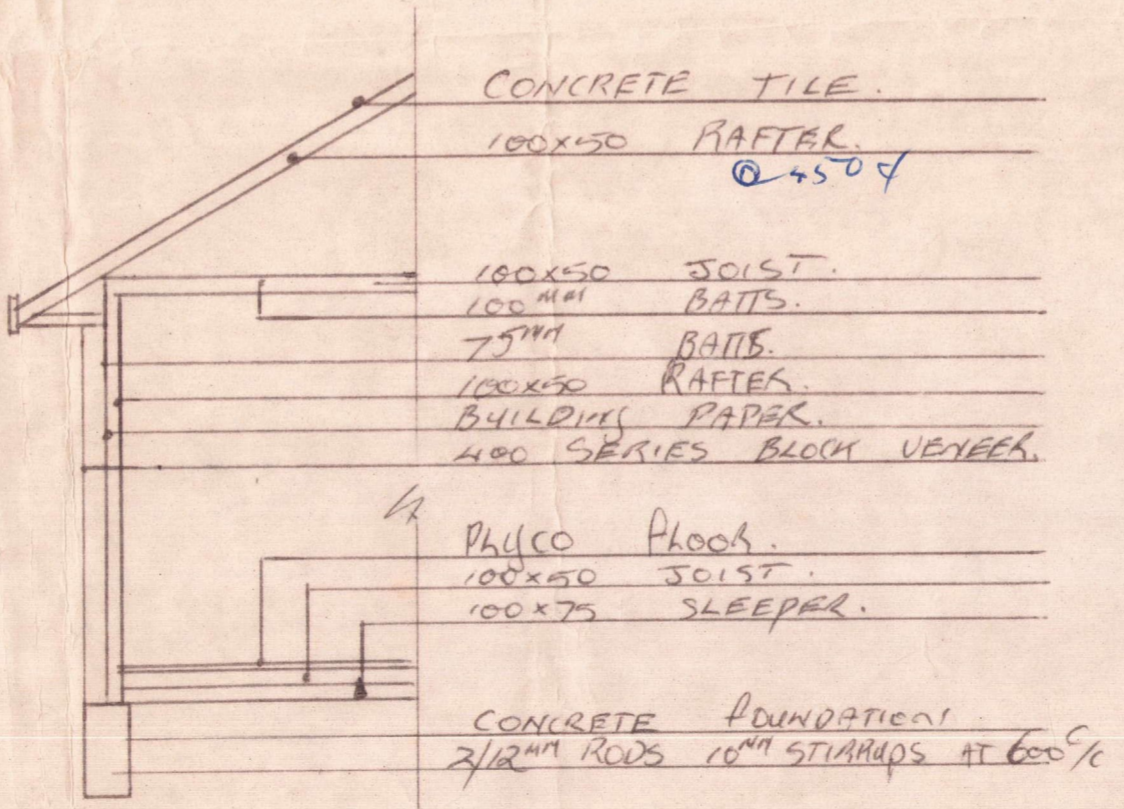 CONCRETE TILE.
100x50 RAFTER.
@ 450 ¢
100x50 JOIST.
100MM BATTS.
75MM BATTS.
100x50 RAFTER.
BUILDING PAPER.
400 SERIES BLOCK VENEER.
PLYCO FLOOR.
100x50 JOIST.
100x75 SLEEPER.
CONCRETE FOUNDATION
2/12MM RODS 10MM STIRRUPS AT 600 C/C